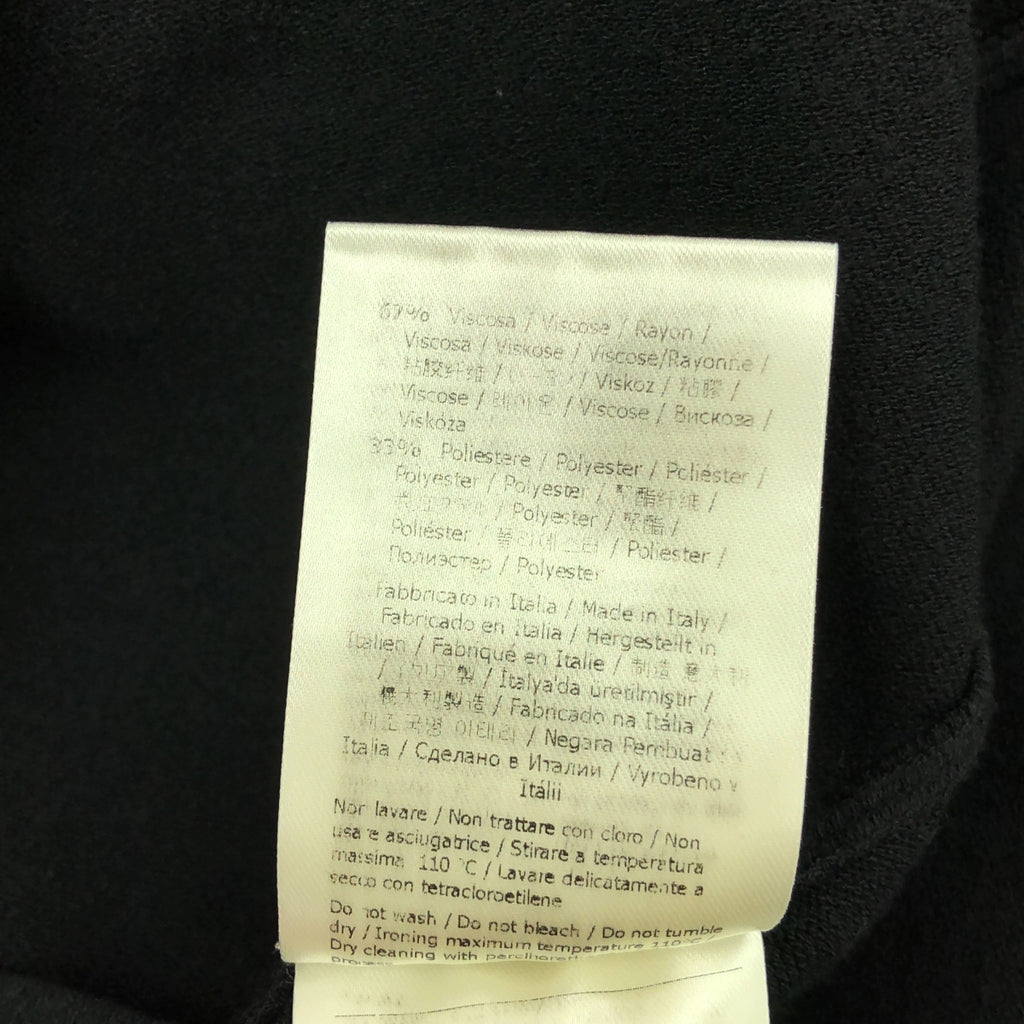 67% Viscosa / Viscose / Rayon /
Viscosa / Viskose / Viscose/Rayonne /
粘胶纤维 / / Viskoz / 粘膠 /
Viscose / 레이온 / Viscose / Вискоза /
Viskóza
33% Poliestere / Polyester / Poliéster /
Polyester / Polyester / 聚酯纤维 /
/ Polyester / 聚酯 /
Poliéster / 폴리에스터 / Poliester /
Полиэстер / Polyester
Fabbricato in Italia / Made in Italy /
Fabricado en Italia / Hergestellt in
Italien / Fabriqué en Italie / 制造 意大利
/ イタリア製 / İtalya'da üretilmiştir /
意大利製造 / Fabricado na Itália /
제조국명 이태리 / Negara Pembuat :
Italia / Сделано в Италии / Vyrobeno v
Itálii
Non lavare / Non trattare con cloro / Non
usare asciugatrice / Stirare a temperatura
massima 110 °C / Lavare delicatamente a
secco con tetracloroetilene
Do not wash / Do not bleach / Do not tumble
dry / Ironing maximum temperature 110°C /
Dry cleaning with